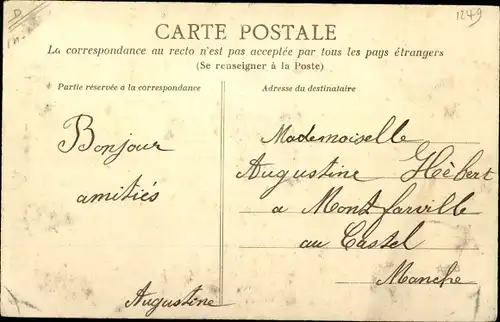 1249
CARTE POSTALE
La correspondance au recto n'est pas acceptée par tous les pays étrangers
(Se renseigner à la Poste)
Partie réservée à la correspondance
Adresse du destinataire
Bonjour
amitiés
Augustine
Mademoiselle
Augustine Hébert
a Montfarville
au Castel
Manche